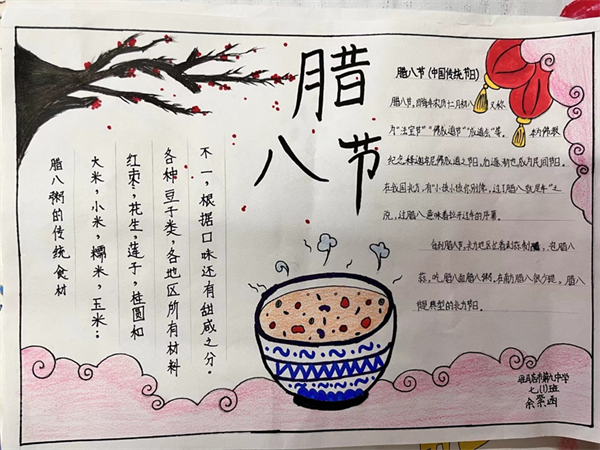 腊
八节
腊八粥的传统食材
大米，小米，糯米，玉米..
红枣，花生，莲子，桂圆和
各种豆子类，各地区所有材料
不一，根据口味还有甜咸之分。
腊八节(中国传统节日)
腊八节，即每年农历十二月初八，又称
为"法宝节""佛成道节""成道会"等。本为佛教
纪念释迦牟尼佛成道之节日，后逐渐也成为民间节日。
在我国北方，有"小孩小孩你别馋，过了腊八就是年"之
说，过腊八意味着拉开过年的序幕。
每到腊八节，北方地区忙着剥蒜制醋，泡腊八
蒜，吃腊八面腊八粥。在南方腊八很少提，腊八
节是典型的北方节日。
驻马店市第九中学
七(1)班
余紫涵